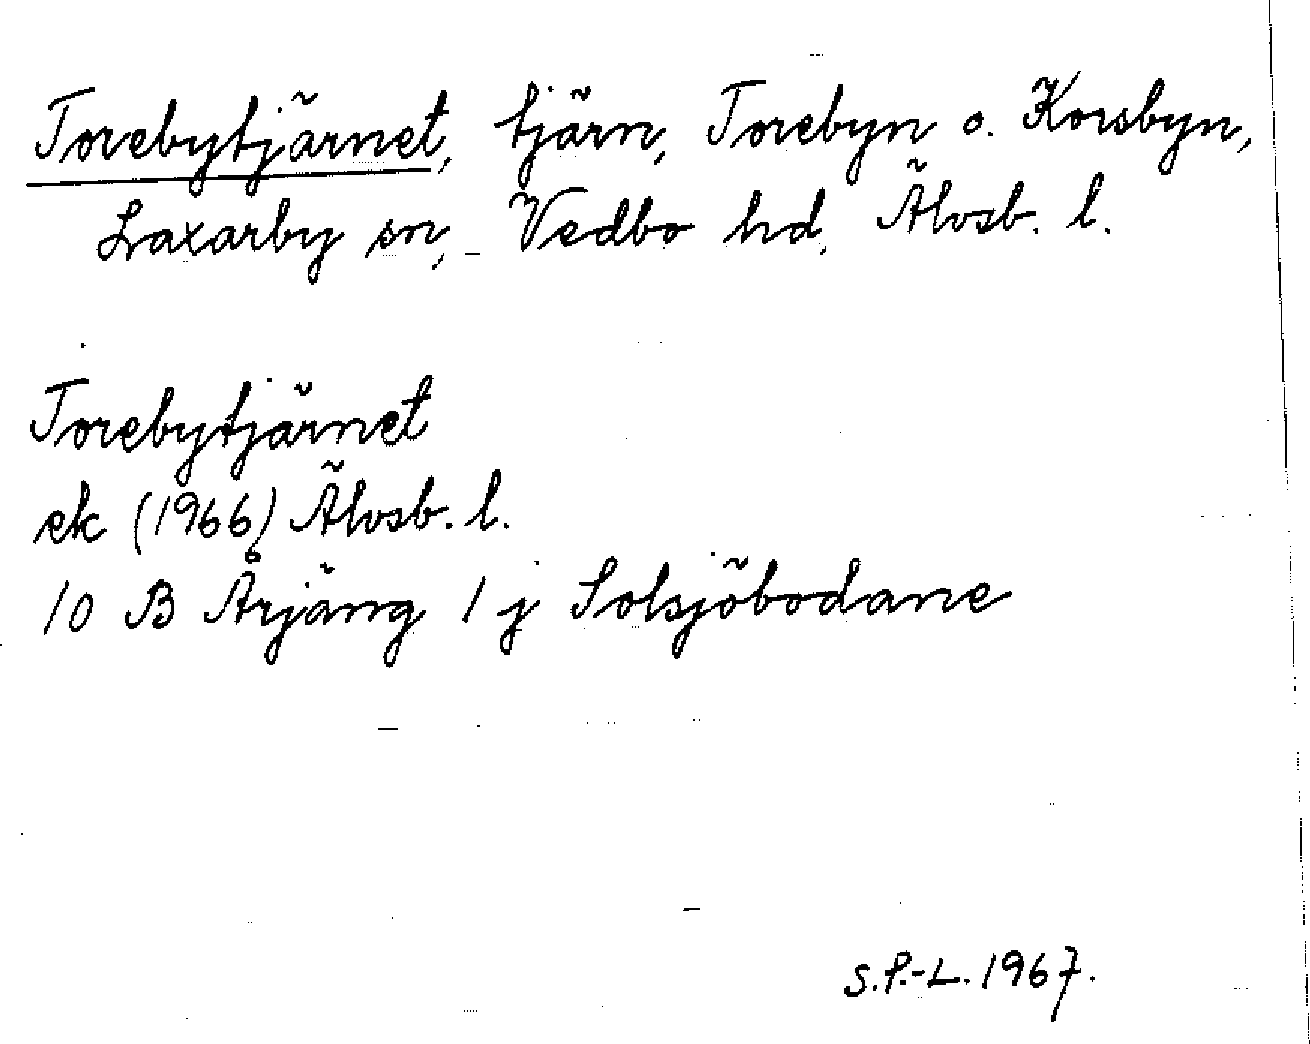 Torebytjärnet, tjärn, Torebyn o. Korsbyn,
Laxarby sn, Vedbo hd, Älvsb. l.
Torebytjärnet
ek (1966) Älvsb. l.
10 B Årjäng 1 j Solsjöbodane
S.P.-L. 1967.